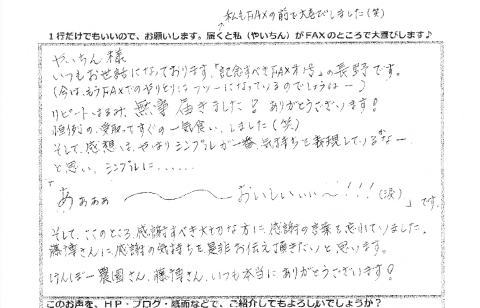 私もFAXの前で大喜びしました(笑)
1行だけでもいいので、お願いします。届くと私(やいちん)がFAXのところで大喜びします♪
やいちん様
いつもお世話になっております。「記念すべきFAX1号」の長野です。
(今は、もうFAXでのやりとりはフツーになっているのでしょうねー)
リピートはるみ、無事届きました! ありがとうございます!
恒例の、受取ってすぐの一気食い、しました(笑)
そして、感想は、やっぱりシンプルが一番、気持ちを表現しているかなー
と思い、シンプルに……
「あぁぁぁ〜〜〜おいしいぃぃ〜!!!(涙)」です。
そして、ここのところ、感謝すべき大切な方に、感謝の言葉を忘れていました。
藤博さんに感謝の気持ちを是非お伝え頂きたいと思います。
けんぼー農園さん、藤博さん、いつも本当にありがとうございます!
このお声を、HP・ブログ・紙面などで、ご紹介してもよろしいでしょうか?